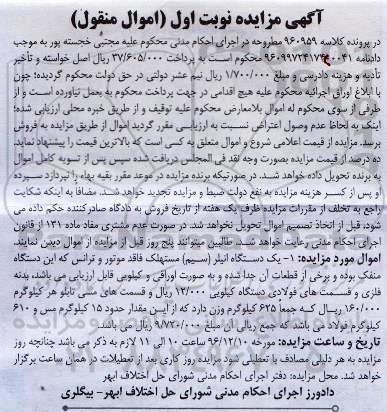 آگهی مزایده نوبت اول (اموال منقول)
در پرونده کلاسه ۹۶۰۹۵۹ مطروحه در اجرای احکام مدنی محکوم علیه مجتبی خجسته پور به موجب
دادنامه محکوم است به پرداخت ۳۷/۶۰۵/۰۰۰ ریال اصل خواسته و تأخیر
تأدیه و هزینه دادرسی و مبلغ ۱/۷۰۰/۰۰۰ ریال نیم عشر دولتی در حق دولت محکوم گردیده؛ چون
با ابلاغ اوراق اجرائیه محکوم علیه هیچ اقدامی در جهت پرداخت محکوم به بعمل نیاورده است و از
طرفی از سوی محکوم له اموال بلامعارض محکوم علیه توقیف و از طریق خبره محلی ارزیابی شده؛
اینک به لحاظ عدم وصول اعتراض نسبت به ارزیابی مقرر گردید اموال از طریق مزایده به فروش
برسد. مزایده از قیمت اعلامی شروع و اموال متعلق به کسی است که بالاترین قیمت را پیشنهاد نماید.
ده درصد از قیمت مزایده بصورت وجه نقد فی المجلس دریافت شده سپس پس از تسویه کامل اموال
به برنده تحویل داده خواهد شد. در صورتیکه برنده مزایده در موعد مقرر بقیه بهاء را نپردازد سپرده
او پس از کسر هزینه مزایده به نفع دولت ضبط و مزایده تجدید خواهد شد. مضافاً به اینکه شکایت
راجع به تخلف از مقررات مزایده ظرف یک هفته از تاریخ فروش به دادگاه صادرکننده حکم داده می
شود، قبل از اتخاذ تصمیم اموال تحویل نخواهد شد. در صورت عدم مشتری مفاد ماده ۱۳۱ از قانون
اجرای احکام مدنی رعایت خواهد شد. طالبین میتوانند پنج روز قبل از مزایده از اموال دیدن نمایند.
اموال مورد مزایده: ۱- یک دستگاه انیلر (سیم) مستهلک فاقد موتور و ترانس که این دستگاه
منفک بوده و برخی از قطعات آن جدا شده و به صورت اوراقی و کیلویی قابل ارزیابی می باشد، بدنه
فلزی و قسمت های فولادی دستگاه کیلویی ۱۲/۰۰۰ ریال و قسمت های مسی تابلو هر کیلوگرم
۱۶۰/۰۰۰ ریال که جمعا ۶۲۵ کیلوگرم وزن دارد که از این مقدار حدود ۱۵ کیلوگرم مس و ۶۱۰
کیلوگرم فولاد می باشد که جمع ریالی آن مبلغ ۹/۷۲۰/۰۰۰ ریال می باشد.
تاریخ و ساعت مزایده: مورخه ۹۶/۱۲/۱۰ ساعت ۱۰ الی ۱۱ لازم به ذکر می باشد چنانچه روز
مزایده به هر دلیلی مصادف با تعطیلی شود مزایده روز کاری بعد از تعطیلات در همان ساعت برگزار
خواهد شد. محل مزایده: دفتر اجرای احکام مدنی شورای حل اختلاف ابهر
دادورز اجرای احکام مدنی شورای حل اختلاف ابهر- بیگلری